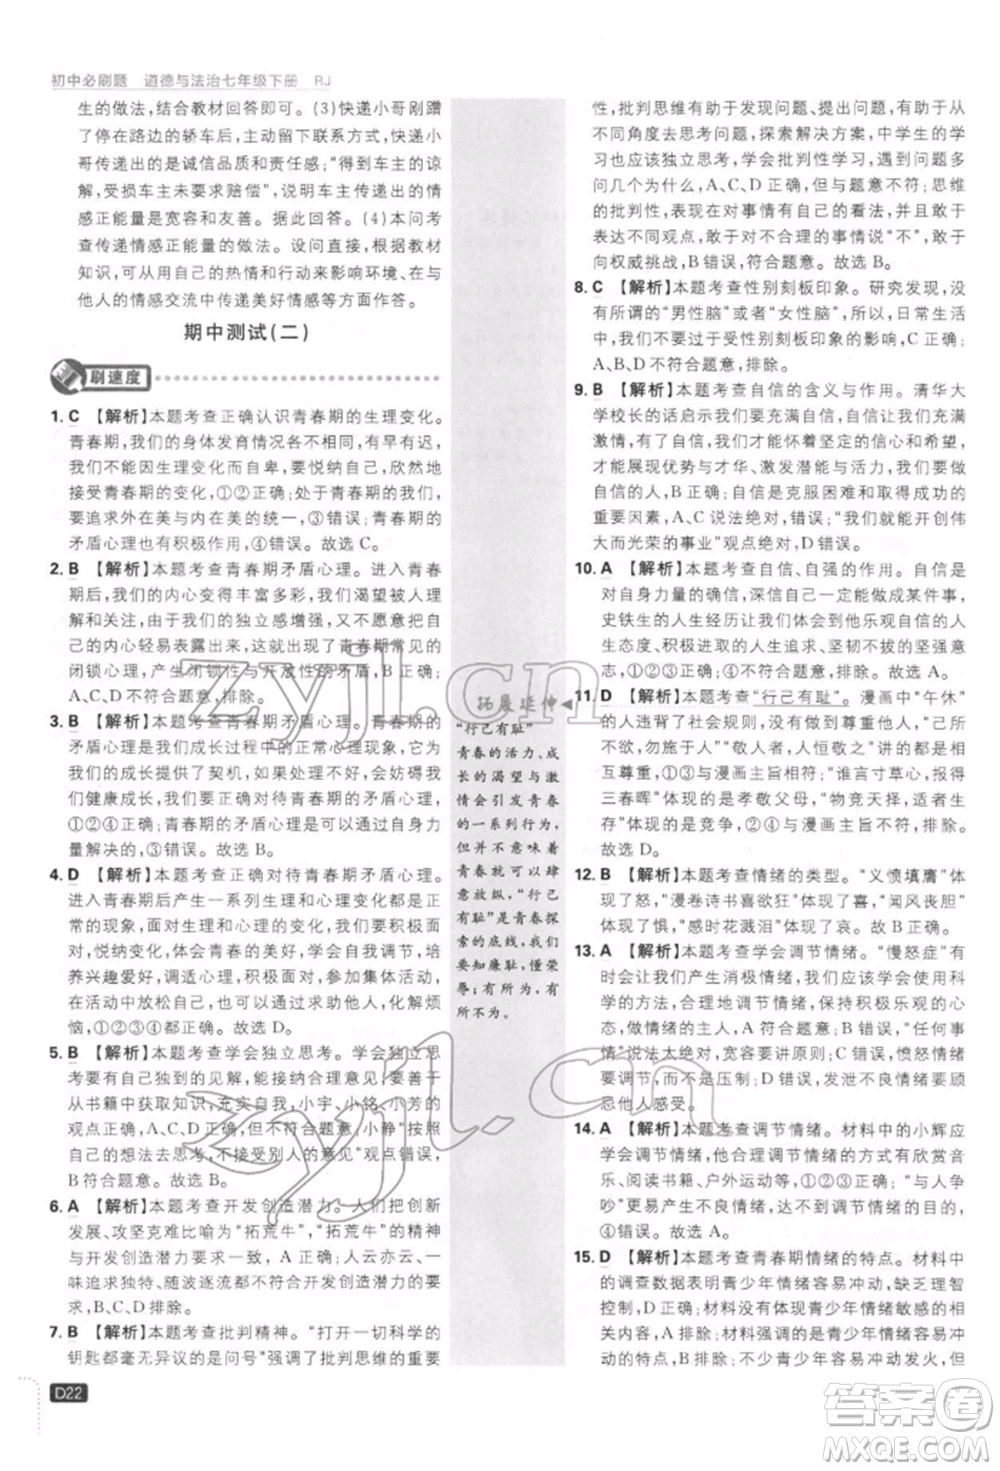 初中必刷题 道德与法治七年级下册 RJ
生的做法，结合教材回答即可。(3)快递小哥刚蹭
了停在路边的轿车后，主动留下联系方式，快递小
哥传递出的是诚信品质和责任感；“得到车主的谅
解，受损车主未要求赔偿”，说明车主传递出的情
感正能量是宽容和友善。据此回答。(4)本问考
查传递情感正能量的做法。设问直接，根据教材
知识，可从自己的热情和行动来影响环境、在与
他人的情感交流中传递美好情感等方面作答。
期中测试(二)
刷速度
1. C 【解析】本题考查正确认识青春期的生理变化。
青春期，我们的身体发育情况各异，有早有迟，
我们不能因生理变化而自卑，要悦纳自己，大胆
接受青春期的变化，①②正确；处于青春期的我们，
要追求外在美与内在美的统一，③错误；青春期的
矛盾心理也有积极作用，④错误。故选 C。
2. B 【解析】本题考查青春期矛盾心理。进入青春
期，我们的内心变得丰富多彩，我们期望被理解
和关注，但由于独立感增强，又对他人有所戒备，
内心不轻易表露出来，这体现了青春期心理上的
闭锁心理，产生闭锁性与开放性的矛盾，B 正确；
A、C、D 不符合题意，排除。故选 B。
3. B 【解析】本题考查青春期矛盾心理。青春期的
矛盾心理是成长过程中的正常心理现象，有时让
我们烦恼，但也为我们的成长提供了契机，有助于
我们健康成长，要正确对待青春期的矛盾心理，
①②④正确；青春期的矛盾心理是可以通过自身力
量解决的，③错误。故选 B。
4. D 【解析】本题考查正确对待青春期矛盾心理。
进入青春期后产生一系列生理和心理变化是自然
现象，面对心理矛盾，我们要顺其自然，为所当
行，悦纳变化，体会青春的美好，求助他人，培
养兴趣爱好，调适心理，积极参加集体活动，在
活动中放松自己，通过自我调节，化解成长烦
恼，①②③④都正确。故选 D。
5. B 【解析】本题考查学会独立思考。学会独立思
考，要有自己独到的见解，能接纳他人合理正确
的意见。充实自我，小宇、小铭、小芳的主张有助于
从书籍中获取知识，①②④正确；思考要有
自己的想法，敢于思考，不接纳任何人的意见，小静“按照
自己的想法去思考，不接纳任何人的意见”观点错误，
③排除。故选 B。
6. A 【解析】本题考查开发创造潜力。人们将创新
发展、攻坚克难比喻为“拓荒牛”，“拓荒牛”的精神
与开发创造潜力要求一致，A 正确；人云亦云、一
味追求独特、随波逐流与创造不符合，不符合题
意，B、C、D 排除。
7. B 【解析】本题考查批判精神。“打开一切科学的
钥匙都毫无异议的是问号”强调了批判思维的重要
性，批判思维有助于发现问题、提出问题，从不
同角度去思考问题，探索解决方案，中学生的学
习也应该独立思考，学会批判性学习，遇到问题
多问几个“为什么”，A、C、D 正确，但与题意不符；思维
的批判性，表现在对事情有自己的看法，并敢于表
达不同观点，敢于对不合理的事情说“不”，敢于
向权威挑战，B 错误，符合题意。故选 B。
8. C 【解析】本题考查性别刻板印象。研究发现，没
有所谓的“男性脑”或者“女性脑”，日常生活中的
很多事情是受到性别刻板印象的影响，C 正确；
A、B、D 不符合题意，排除。
9. B 【解析】本题考查自信的含义与作用。清华大
学校长的话启示我们要充满自信，自信让我们充满
激情，有自信的我们怀着坚定的信心和希望，
才能拓展优势与才华、激发潜能与活力，成为更优
秀的人，B 正确；自信是克服困难和取得成功的
重要因素，A、C 说法绝对，错误；“我们就能开创伟
大而光荣的事业”观点绝对，D错误。
10. A 【解析】本题考查自信、自强的作用。自信是
对自身力量的确信，深信自己一定能做成某件事，
史铁生的人生经历让我们感受到他乐观自信的人
生态度、积极进取的人生追求、坚韧不拔的品质，
①②正确；③④不符合题意。故选 A。
11. D 【解析】本题考查“行己有耻”。漫画中“午休”
的人违背了社会规则，没有做到尊重他人，“己所
不欲，勿施于人”“敬人者，人恒敬之”强调的是相
互尊重，①③与漫画主旨相符；“谁言寸草心，报得
三春晖”体现的是孝敬父母，“物竞天择，适者生
存”体现的是竞争，②④与漫画主旨不符，排除。
故选 D。
12. B 【解析】本题考查情绪的类型。“义愤填膺”
体现了怒，“漫卷诗书喜欲狂”体现了喜，“闻风丧胆”
体现了惧，“感时花溅泪”体现了哀。故 B 正确。
13. A 【解析】本题考查学会调节情绪。“慢怒症”
是让我们产生消极情绪，我们应该学会使用科
学的方法，合理地调节情绪，保持积极的心
态，做情绪的主人，A 符合题意；B 错误，“任何事
情”说法绝对，表达愤怒要讲原则；C 错误，愤怒情绪
要调节，而不是压制；D 错误，发泄不良情绪要顾
忌他人感受。
14. A 【解析】本题考查调节情绪。材料中的小辉应
学会合理调节情绪，合理调节情绪的方式有欣赏音
乐、阅读书籍、户外运动等，①②正确；与人争
吵③④不利于调节不良情绪，排除。故选 A。
15. D 【解析】本题考查青春期情绪的特点。材料中
的调查数据表明青少年情绪容易冲动，缺乏理智
控制，D 正确；A、B、C 与材料中情绪敏感的表现
相关内容不符，错误；材料强调的是青少年情绪容易冲动
不符，A错误；不少青少年容易冲动发火，但不
拓展延伸
“行己有耻”
青春的活力、成
长的渴望与激
情会引发青春
的一系列行为，
但并不意味着
青春就可以肆
意放纵，“行己
有耻”是青春探
索的底线，我们
要知廉耻，懂荣
辱；有所为，有
所不为。
D22
zyjl.cn
zyjl.cn
答案圈
MXQE.COM